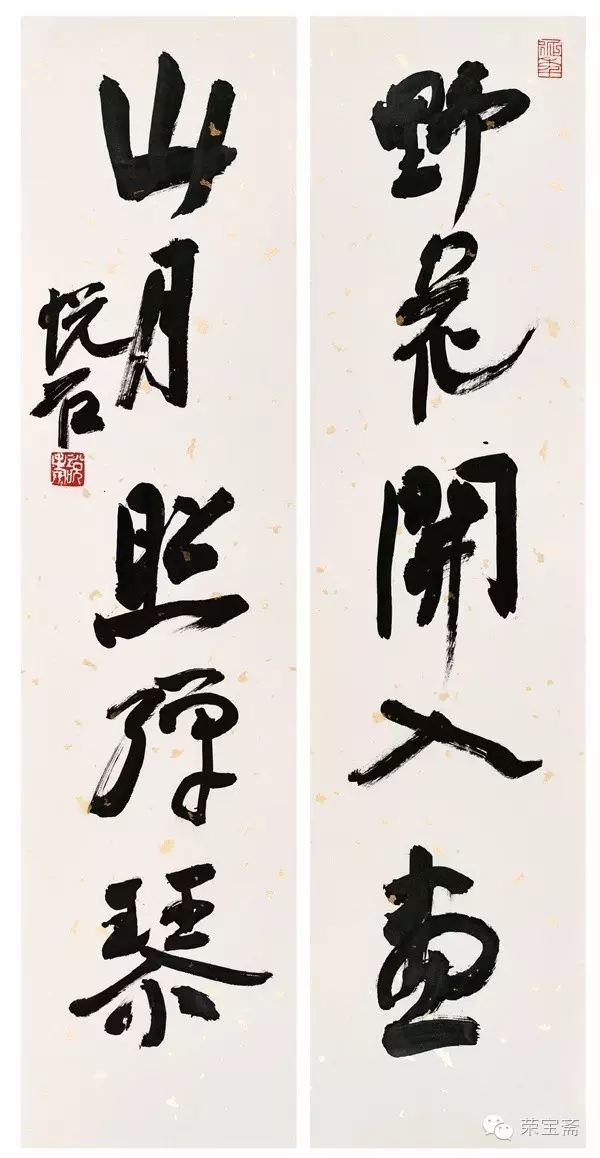 野花開入畫
山月照彈琴
悦石
荣宝斋